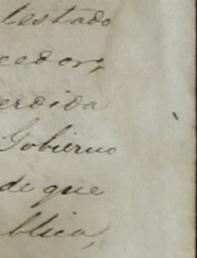 testado
cedor,
erdida
Gobierno
de que
blica,